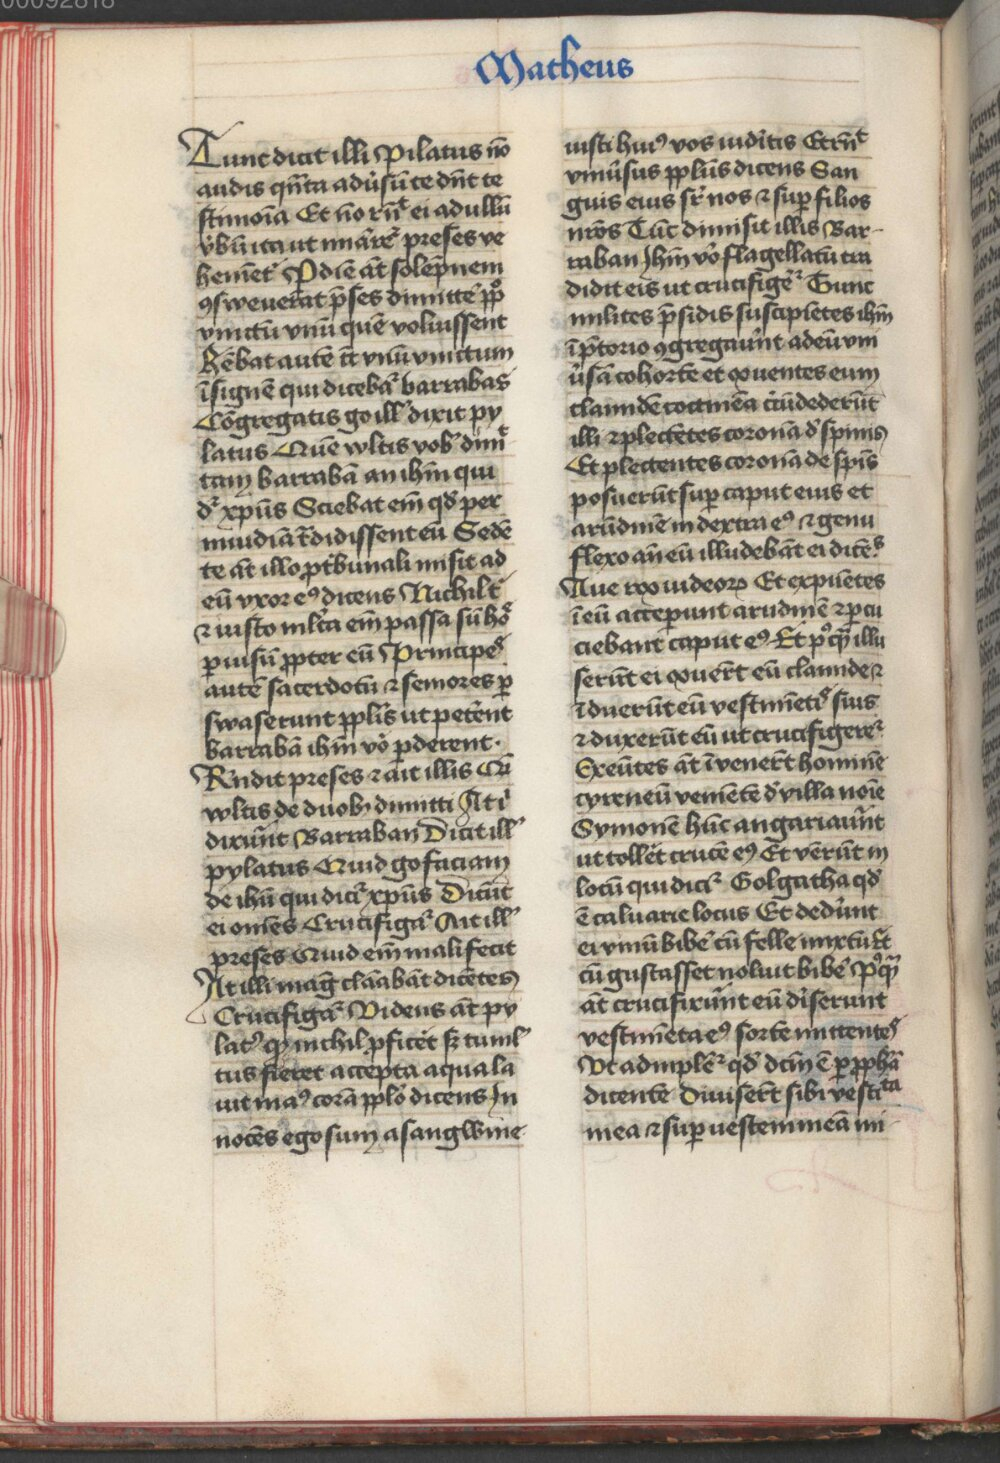 00092818
Matheus
Tunc dicit illi Pilatus nō
audis qn̄ta adūsū te dn̄t te
stimoīa Et nō rn̄t ei ad ullū
ūbū ita ut mirarēt preses ve
hemēt Per diē āt solēpnem
ꝯsweuerat p̄ses dimittē ppło
vinctū vnū quē voluissent
Hēbat autē tc̄ vnū vinctum
īsignē qui dicebat̄ barrabas
Cōgregatis go ill' dixit py
latus Quē wltis vob' dimit
tam barrabā an ihm̄ qui
dr̄ xpūs Sciebat em̄ qd' per
inuidiā tr̄didissent eū Sedē
te āt illo p tbunali misit ad
eū vxor eꝰ dicens Nichil t'
⁊ iusto mlta em̄ passa sū hō
p uisū ppter eū Principes
autē sacerdotū ⁊ seniores p
swaserunt ppl'is ut petēnt
barrabā ihm̄ vō pderent·
Rn̄dit preses ⁊ ait illis Quē
wltis de duob; dimitti At i'
dixerūt Barraban Dicit ill'
pylatus Quid go faciam
de ihū qui dicit̄ xpūs Dicūt
ei om̄es Crucifigat̄ Ait ill'
preses Quid em̄ mali fecit
At illi mag clamabāt dicētes
Crucifigat̄ Videns āt py
latꝰ qꝫ nichil pficēt sꝫ tumł
tus fieret accepta aqua la
uit maꝰ corā pplō dicens In
nocēs ego sum a sangwine
iusti huiꝰ vos uidītis Et rn̄t
vniūsus pplūs dicens San
guis eius sr̄ nos ⁊ sup filios
nr̄os Tūc dimisit illis Bar-
raban Ihm̄ vō flagellatū tra
didit eis ut crucifigēr̄ Tunc
milites p̄sidis suscipiētes ihm̄
ī p̄torio ꝯgregaūnt ad eū vni
ūsā cohortē et exuentes eum
clamidē coccineā cūdederūt
illi ⁊ plectētes coronā d' spinis
Et plectentes coronā de spīs
posuerūt sup caput eius et
arūdinē in dextra eꝰ ⁊ genu
flexo an̄ eū illudebāt ei dicētes
Aue rex iudeorꝝ Et expuētes
ī eū acceperunt arudinē ⁊ pcu
ciebant caput eꝰ Et pꝰqꝫ illu
serūt ei exuert eū clamide ⁊
īduerūt eū vestimētis suis
⁊ duxerūt eū ut crucifigerēt
Exeūtes āt īvenert hominē
cyreneū veniētē d' villa noīe
Symonē hūc angariauūt
ut tollet crucē eꝰ Et venerūt in
locū qui dicit̄ Golgatha qd'
ē caluarie locus Et dedūnt
ei vinū bibē cū felle mixtū Et
cū gustasset noluit bibē Pꝰqꝫ
āt crucifixūnt eū dīserunt
vestimēta eꝰ sortē mittentes
Vt adimplēr̄ qd' dcm̄ ē p pphā
dicentē Diuisert sibi vesti ta
mea ⁊ sup uestem meā mi